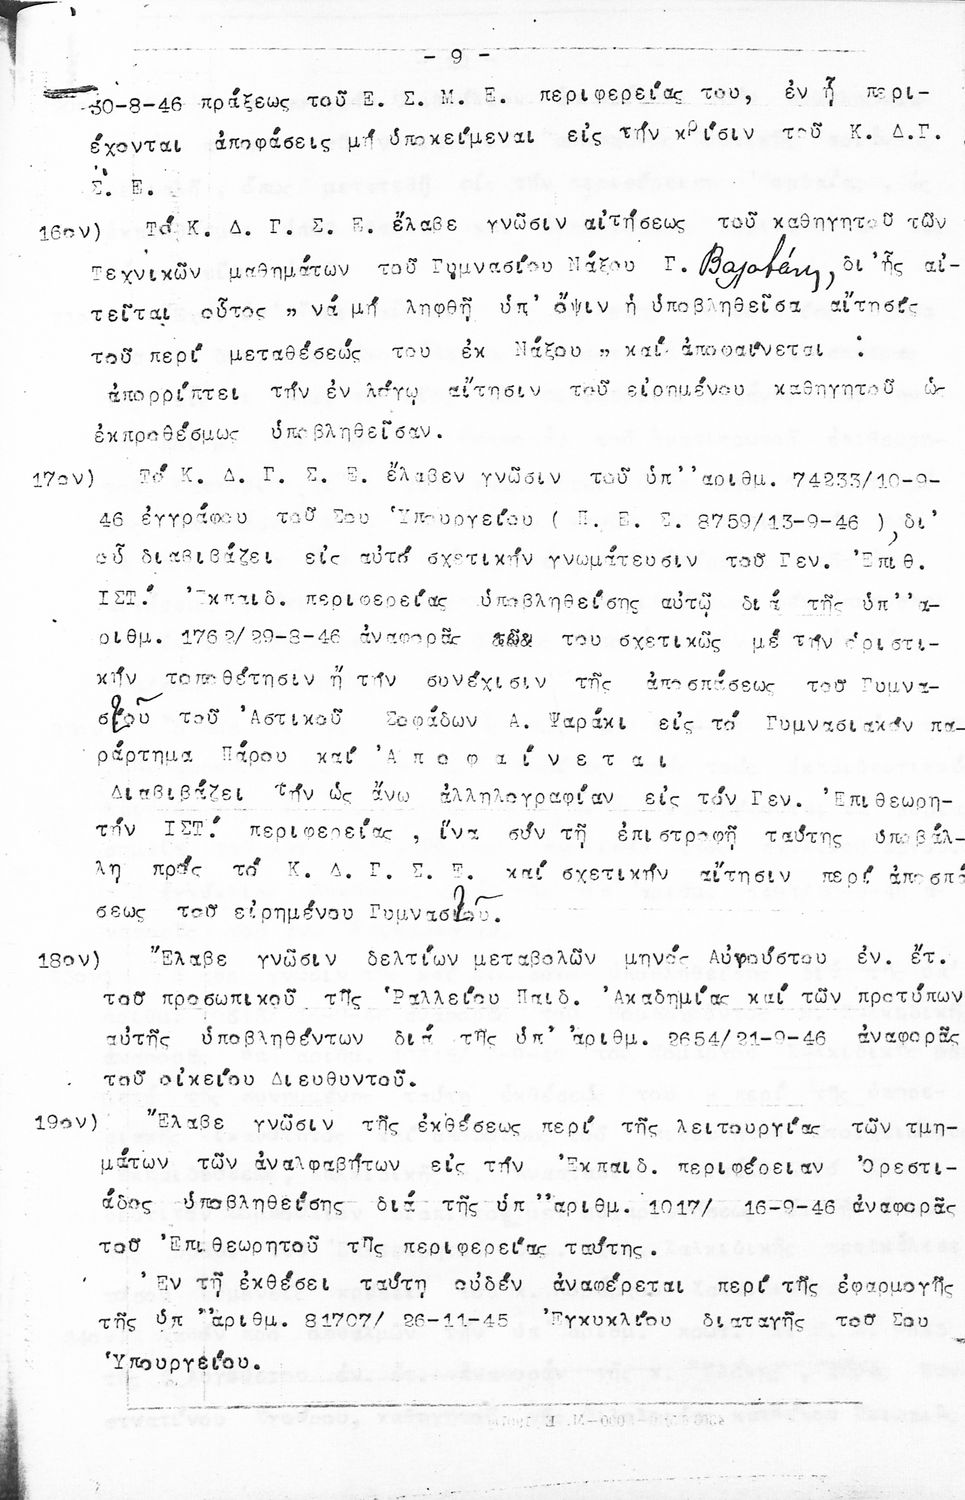 - 9 -
30-8-46 πράξεως τοῦ Ε. Σ. Μ. Ε. περιφερείας του, ἐν ᾗ περι-
έχονται ἀποφάσεις μή ὑποκείμεναι εἰς τήν κρίσιν τοῦ Κ. Δ.Γ.
Σ. Ε.
16ον) Τό Κ. Δ. Γ. Σ. Ε. ἔλαβε γνῶσιν αἰτήσεως τοῦ καθηγητοῦ τῶν
Τεχνικῶν μαθημάτων τοῦ Γυμνασίου Νάξου Γ. , δι'ἧς αἰ-
τεῖται οὗτος " νά μή ληφθῇ ὑπ' ὄψιν ἡ ὑποβληθεῖσα αἴτησίς
τοῦ περί μεταθέσεώς του ἐκ Νάξου " καί ἀποφαίνεται :
ἀπορρίπτει τήν ἐν λόγῳ αἴτησιν τοῦ εἰρημένου καθηγητοῦ ὡς
ἐκπροθέσμως ὑποβληθεῖσαν.
17ον) Τό Κ. Δ. Γ. Σ. Ε. ἔλαβεν γνῶσιν τοῦ ὑπ''αριθμ. 74233/10-9-
46 ἐγγράφου τοῦ Σου Ὑπουργείου ( Π. Ε. Σ. 8759/13-9-46 ), δι'
οὗ διαβιβάζει εἰς αὐτό σχετικήν γνωμάτευσιν τοῦ Γεν. Ἐπιθ.
ΙΣΤ.' Ἐκπαιδ. περιφερείας ὑποβληθείσης αὐτῷ διά τῆς ὑπ''α-
ριθμ. 1762/29-8-46 ἀναφορᾶς του σχετικῶς μέ τήν ὁριστι-
κήν τοποθέτησιν ἤ τήν συνέχισιν τῆς ἀποσπάσεως τοῦ Γυμνα-
σίου τοῦ Ἀστικοῦ Σοφάδων Α. Ψαράκι εἰς τό Γυμνασιακόν πα-
ράρτημα Πάρου καί Ἀ π ο φ α ί ν ε τ α ι
Διαβιβάζει τήν ὡς ἄνω ἀλληλογραφίαν εἰς τόν Γεν. Ἐπιθεωρη-
τήν ΙΣΤ.' περιφερείας , ἵνα σύν τῇ ἐπιστροφῇ ταύτης ὑποβάλ-
λη πρός τό Κ. Δ. Γ. Σ. Ε. καί σχετικήν αἴτησιν περί ἀποσπά
σεως τοῦ εἰρημένου Γυμνασίου.
18ον) Ἔλαβε γνῶσιν δελτίων μεταβολῶν μηνός Αὐγούστου ἐν. ἔτ.
τοῦ προσωπικοῦ τῆς Ῥαλλείου Παιδ. Ἀκαδημίας καί τῶν προτύπων
αὐτῆς ὑποβληθέντων διά τῆς ὑπ' ἀριθμ. 2654/21-9-46 ἀναφορᾶς
τοῦ οἰκείου Διευθυντοῦ.
19ον) Ἔλαβε γνῶσιν τῆς ἐκθέσεως περί τῆς λειτουργίας τῶν τμη-
μάτων τῶν ἀναλφαβήτων εἰς τήν Ἐκπαιδ. περιφέρειαν Ὀρεστι-
άδος ὑποβληθείσης διά τῆς ὑπ''ἀριθμ. 1017/ 16-9-46 ἀναφορᾶς
τοῦ Ἐπιθεωρητοῦ τῆς περιφερείας ταύτης.
Ἐν τῇ ἐκθέσει ταύτῃ οὐδέν ἀναφέρεται περί τῆς ἐφαρμογῆς
τῆς ὑπ ''ἀριθμ. 81707/ 26-11-45 Ἐγκυκλίου διαταγῆς τοῦ Σου
Ὑπουργείου.